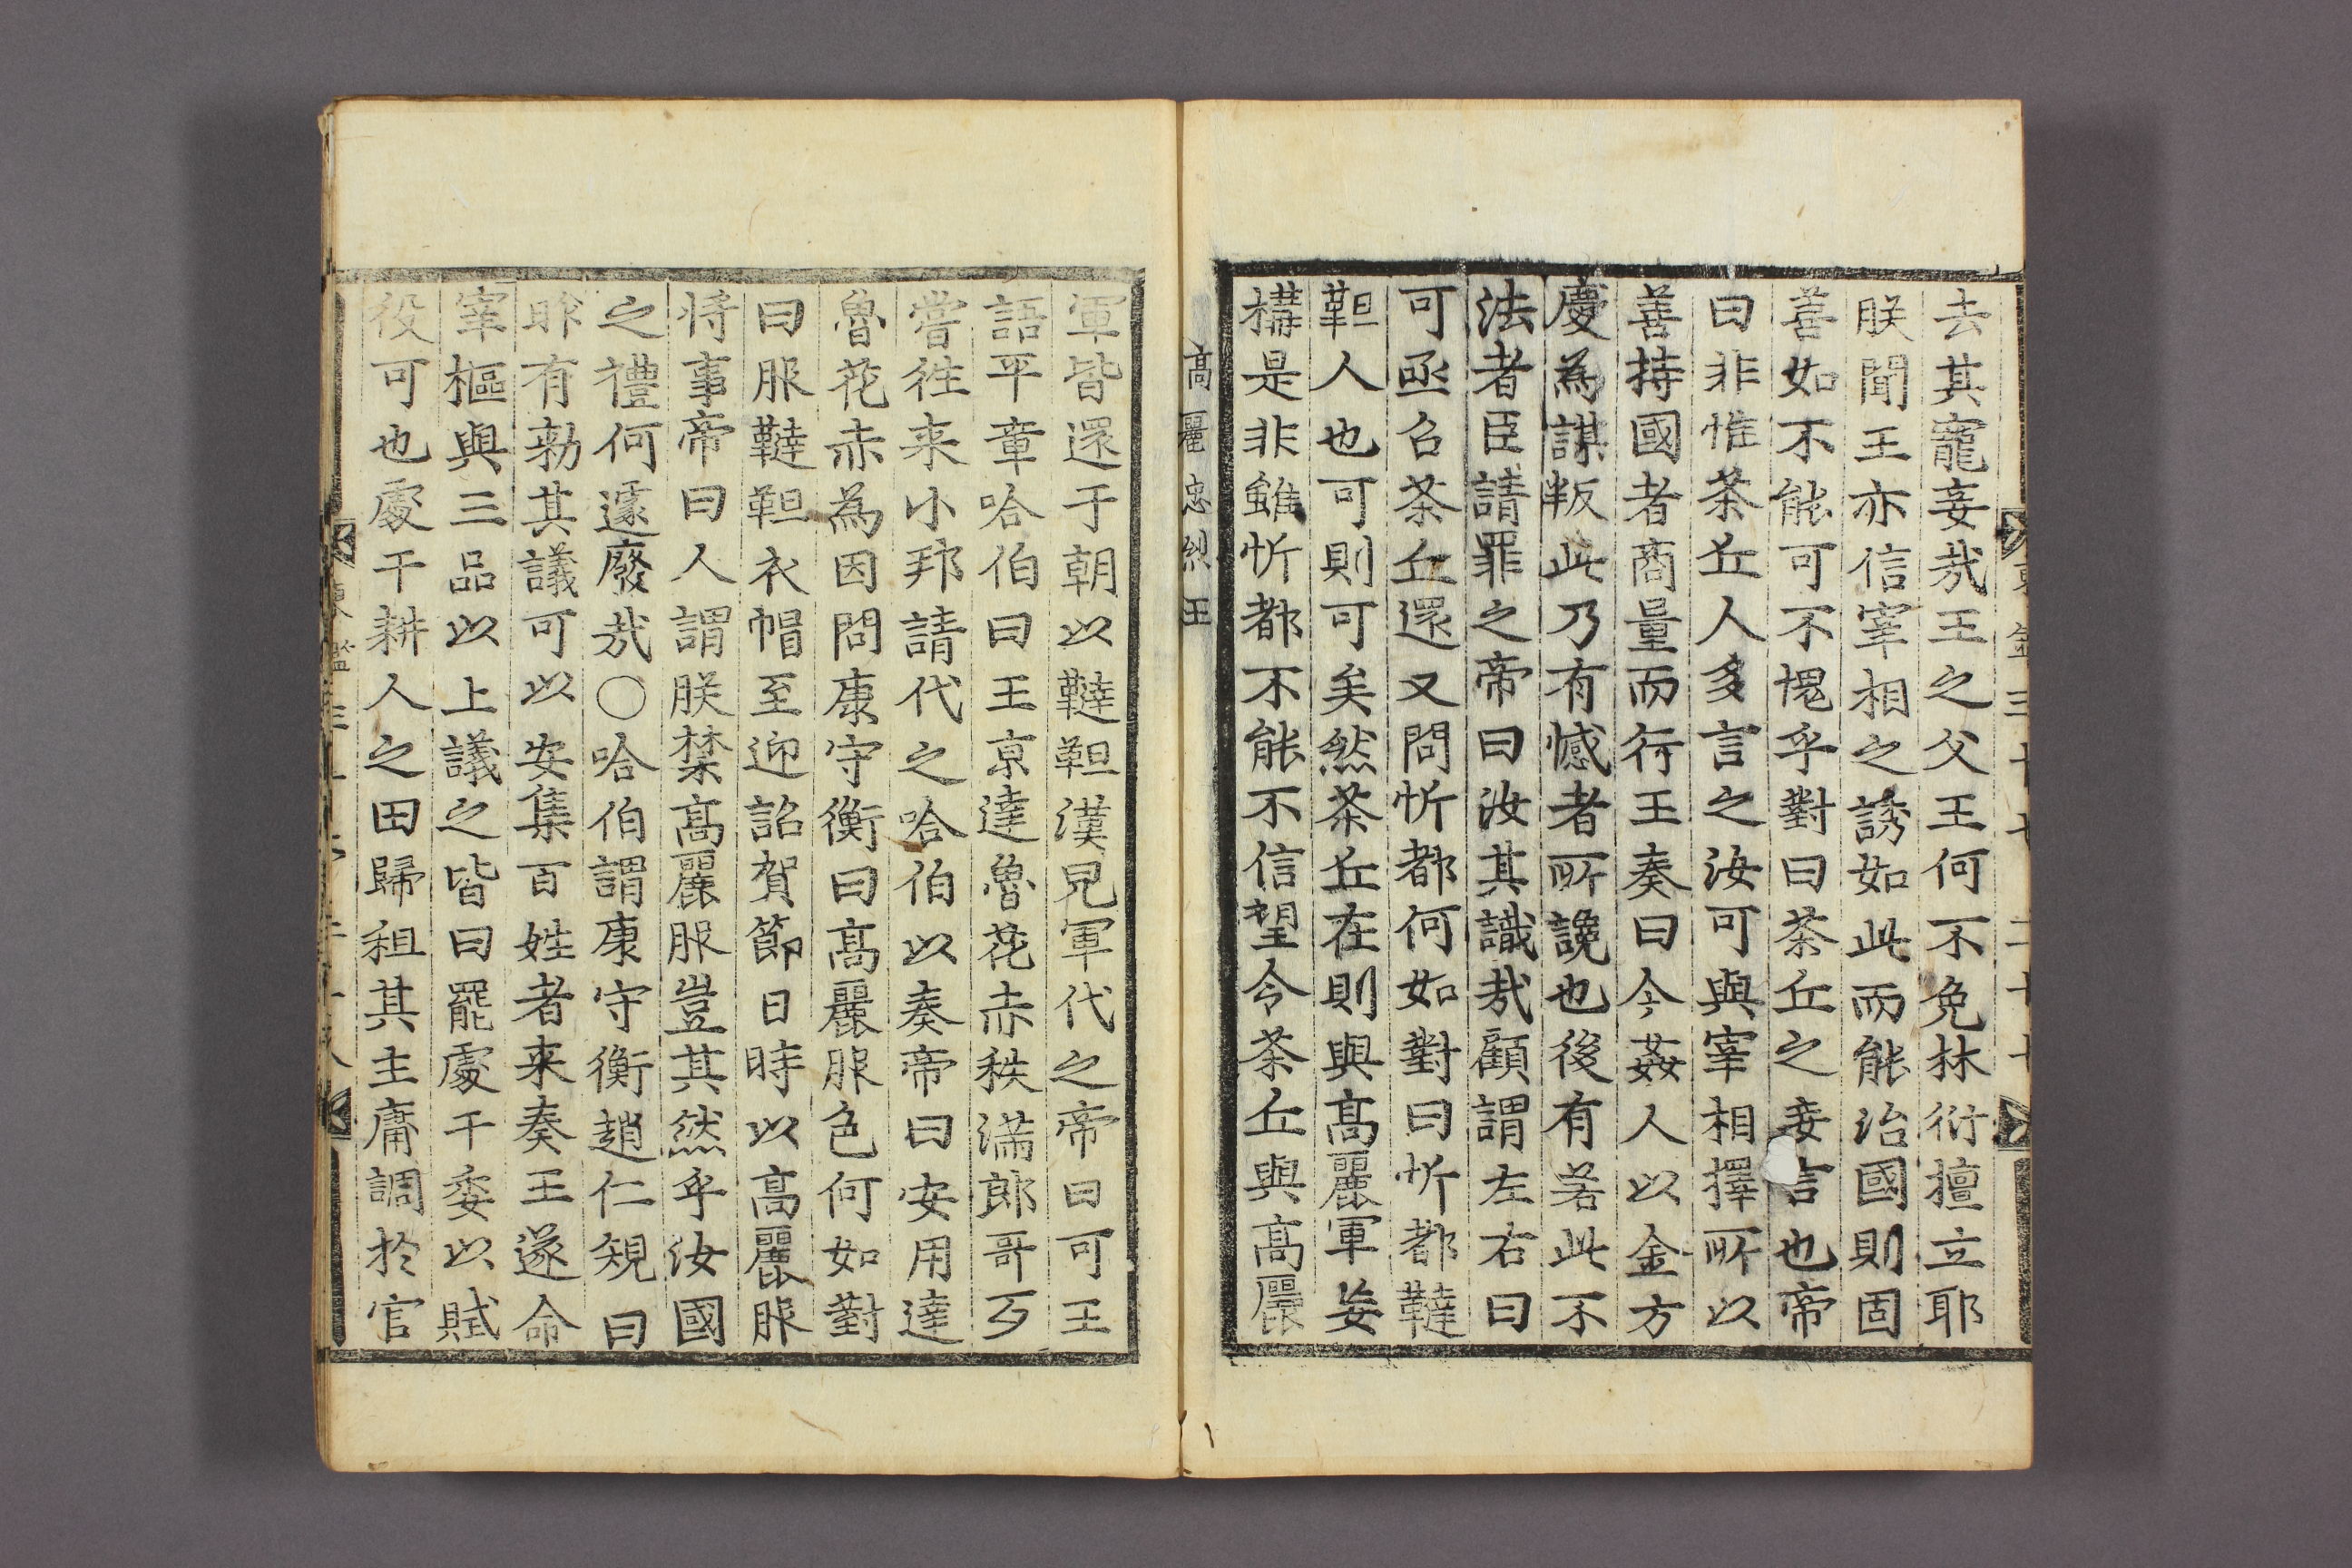 去其寵妾㢤王之父王何不免林衍擅立耶
朕聞王亦信宰相之誘如此而能治國則固
善如不能可不愧乎對曰茶丘之妄言也帝
曰非惟茶丘人多言之汝可與宰相擇所以
善持國者商量而行王奏曰今姦人以金方
慶為謀叛此乃有憾者所讒也後有若此不
法者臣請罪之帝曰汝其識㢤顧謂左右曰
可亟召茶丘還又問忻都何如對曰忻都韃
靼人也可則可矣然茶丘在則與高麗軍妄
構是非雖忻都不能不信望令茶丘與高麗
高麗忠烈王
軍皆還于朝以韃靼漢兒軍代之帝曰可王
語平章哈伯曰王京達魯花赤秩滿郎哥歹
嘗徃来小邦請代之哈伯以奏帝曰安用達
魯花赤為因問康守衡曰高麗服色何如對
曰服韃靼衣帽至迎詔賀節日時以高麗服
將事帝曰人謂朕禁高麗服豈其然乎汝國
之禮何遽廢㢤○哈伯謂康守衡趙仁規曰
昨有勑其議可以安集百姓者来奏王遂命
宰樞與三品以上議之皆曰罷處干委以賦
役可也處干耕人之田歸租其主庸調於官